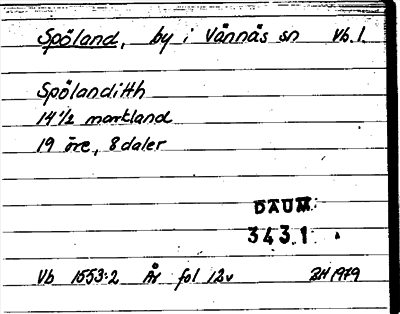 Spöland, by i Vännäs sn Vb.l.
Spölanditth
14 1/2 markland
19 öre, 8 daler
DAUM
3431
Vb 1553:2 År fol 12v BH 1979